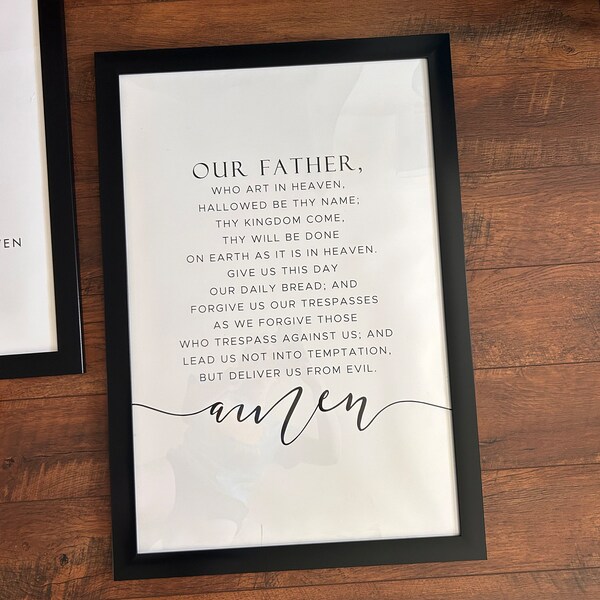 OUR FATHER,
WHO ART IN HEAVEN,
HALLOWED BE THY NAME;
THY KINGDOM COME,
THY WILL BE DONE
ON EARTH AS IT IS IN HEAVEN.
GIVE US THIS DAY
OUR DAILY BREAD; AND
FORGIVE US OUR TRESPASSES
AS WE FORGIVE THOSE
WHO TRESPASS AGAINST US; AND
LEAD US NOT INTO TEMPTATION,
BUT DELIVER US FROM EVIL.
amen